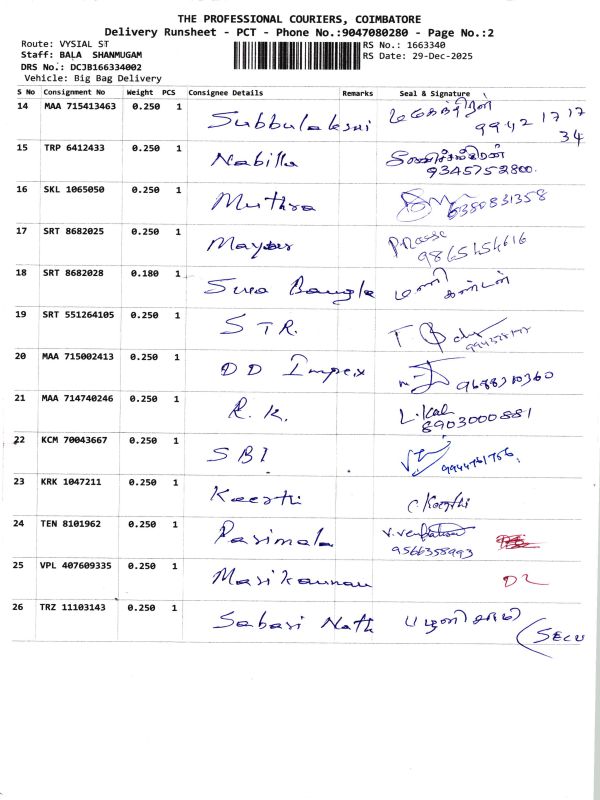 THE PROFESSIONAL COURIERS, COIMBATORE
Delivery Runsheet - PCT - Phone No.:9047080280 - Page No.:2
Route: VYSIAL ST
RS No.: 1663340
Staff: BALA SHANMUGAM
RS Date: 29-Dec-2025
DRS No.: DCJB166334002
Vehicle: Big Bag Delivery
S No Consignment No Weight PCS Consignee Details Remarks Seal & Signature
14 MAA 715413463 0.250 1 Subbulakshi மகேந்திரன்
99421717
34
15 TRP 6412433 0.250 1 Nabilla
9345752800.
16 SKL 1065050 0.250 1 Muthra 6380831358
17 SRT 8682025 0.250 1
9865454616
18 SRT 8682028 0.180 1 Bangle மணி
கண்டன்
19 SRT 551264105 0.250 1 STR.
20 MAA 715002413 0.250 1 DD Impex 9688310360
21 MAA 714740246 0.250 1 R.K. L.Kal
8903000881
22 KCM 70043667 0.250 1 SBI 9944761756.
23 KRK 1047211 0.250 1 Keerthi C.Keerthi
24 TEN 8101962 0.250 1 Parimala
9566358993
25 VPL 407609335 0.250 1 Masikannan DL
26 TRZ 11103143 0.250 1 Sabari Nath பழனிசாமி
(SECU